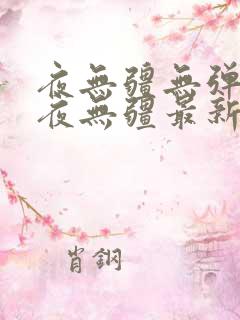 夜無疆無弹
夜無疆最新
肖鋼